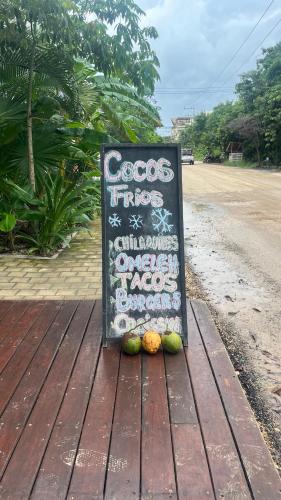 Cocos
Frios
CHILAQUILES
OMELET
TACOS
BURGERS